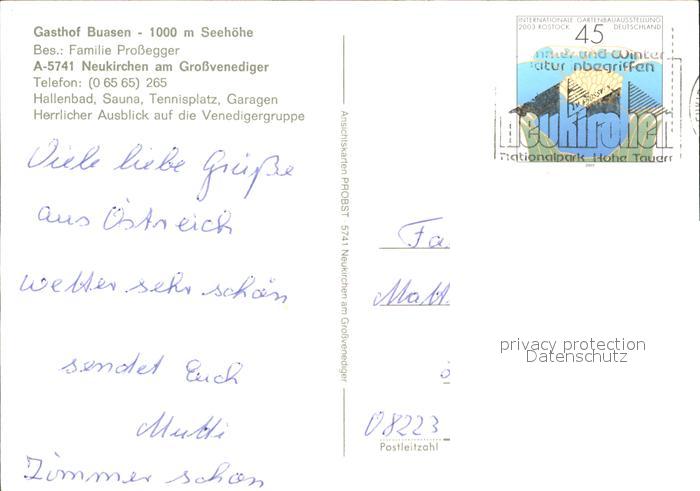 Gasthof Buasen - 1000 m Seehöhe
Bes.: Familie Proßegger
A-5741 Neukirchen am Großvenediger
Telefon: (0 65 65) 265
Hallenbad, Sauna, Tennisplatz, Garagen
Herrlicher Ausblick auf die Venedigergruppe
Viele liebe Grüße
aus Östreich
wetter sehr schön
sendet Euch
Mutti
Zimmer schön
Ansichtskarten PROBST 5741 Neukirchen am Großvenediger
INTERNATIONALE GARTENBAUAUSSTELLUNG
2003 ROSTOCK DEUTSCHLAND
45
und Winter
Natur inbegriffen
Neukirchen
Nationalpark Hohe Tauern
Fa.
08223
Postleitzahl
privacy protection
Datenschutz